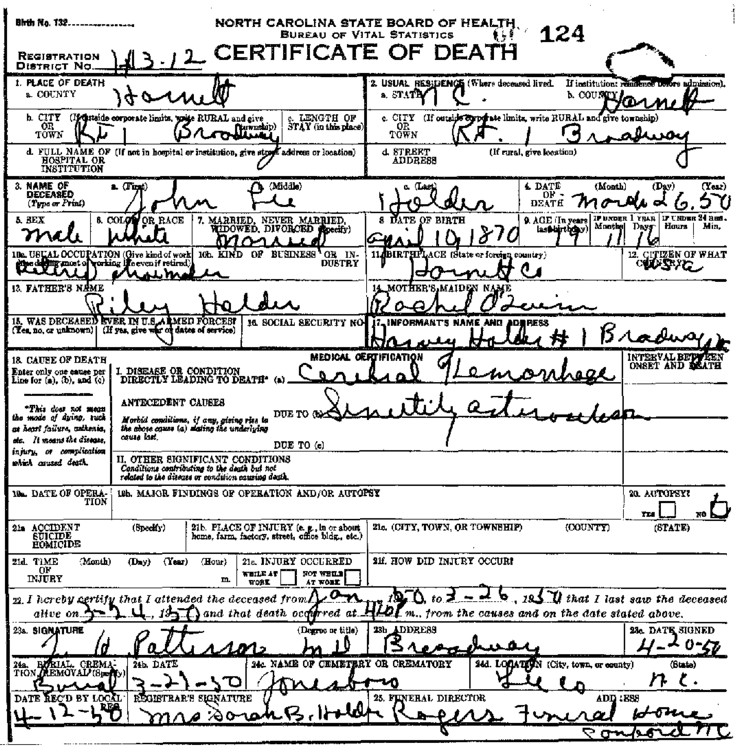 Birth No. 132
NORTH CAROLINA STATE BOARD OF HEALTH
BUREAU OF VITAL STATISTICS
124
REGISTRATION DISTRICT No. 43-12
CERTIFICATE OF DEATH
1. PLACE OF DEATH
a. COUNTY Harnett
2. USUAL RESIDENCE (Where deceased lived. If institution: residence before admission).
a. STATE N.C. b. COUNTY Harnett
b. CITY (If outside corporate limits, write RURAL and give township) OR TOWN Rt 1 Broadway
c. LENGTH OF STAY (in this place)
c. CITY (If outside corporate limits, write RURAL and give township) OR TOWN Rt. 1 Broadway
d. FULL NAME OF (If not in hospital or institution, give street address or location) HOSPITAL OR INSTITUTION
d. STREET ADDRESS (If rural, give location)
3. NAME OF DECEASED (Type or Print)
a. (First) John (Middle) Lee c. (Last) Holder
4. DATE OF DEATH (Month) (Day) (Year) March 26, 50
5. SEX male
6. COLOR OR RACE White
7. MARRIED, NEVER MARRIED, WIDOWED, DIVORCED (Specify) Married
8 DATE OF BIRTH April 10, 1870
9. AGE (In years last birthday) 79 IF UNDER 1 YEAR Months 11 Days 16 IF UNDER 24 HRS. Hours Min.
10a. USUAL OCCUPATION (Give kind of work done during most of working life even if retired) Retired
10b. KIND OF BUSINESS OR INDUSTRY
11. BIRTHPLACE (State or foreign country) Harnett Co
12. CITIZEN OF WHAT COUNTRY? USA
13. FATHER'S NAME Riley Holder
14. MOTHER'S MAIDEN NAME Rachel O'Quinn
15. WAS DECEASED EVER IN U.S. ARMED FORCES? (Yes, no, or unknown) (If yes, give war or dates of service)
16. SOCIAL SECURITY NO
17. INFORMANT'S NAME AND ADDRESS Harvey Holder # 1 Broadway NC
18. CAUSE OF DEATH
Enter only one cause per Line for (a), (b), and (c)
MEDICAL CERTIFICATION
INTERVAL BETWEEN ONSET AND DEATH
I. DISEASE OR CONDITION DIRECTLY LEADING TO DEATH* (a) Cerebral Hemorrhage
*This does not mean the mode of dying, such as heart failure, asthenia, etc. It means the disease, injury, or complication which caused death.
ANTECEDENT CAUSES
Morbid conditions, if any, giving rise to the above cause (a) stating the underlying cause last.
DUE TO (b)
DUE TO (c)
II. OTHER SIGNIFICANT CONDITIONS
Conditions contributing to the death but not related to the disease or condition causing death.
19a. DATE OF OPERATION
19b. MAJOR FINDINGS OF OPERATION AND/OR AUTOPSY
20. AUTOPSY? YES NO
21a ACCIDENT SUICIDE HOMICIDE (Specify)
21b. PLACE OF INJURY (e. g., in or about home, farm, factory, street, office bldg., etc.)
21c. (CITY, TOWN, OR TOWNSHIP) (COUNTY) (STATE)
21d. TIME OF INJURY (Month) (Day) (Year) (Hour) m.
21e. INJURY OCCURRED WHILE AT WORK NOT WHILE AT WORK
21f. HOW DID INJURY OCCUR?
22. I hereby certify that I attended the deceased from Jan, 1950, to 3-26, 1950 that I last saw the deceased
alive on 3-24, 1950 and that death occurred at m., from the causes and on the date stated above.
23a. SIGNATURE Patterson (Degree or title) MD
23b ADDRESS Broadway
23c. DATE SIGNED 4-20-50
24a. BURIAL, CREMATION, REMOVAL (Specify) Burial
24b. DATE 3-27-50
24c. NAME OF CEMETERY OR CREMATORY Jonesboro
24d. LOCATION (City, town, or county) (State) Lee Co N.C.
DATE REC'D BY LOCAL REG. 4-12-50
REGISTRAR'S SIGNATURE Mrs. Sarah B. Holder
25. FUNERAL DIRECTOR ADDRESS Rogers Funeral Home
Sanford NC